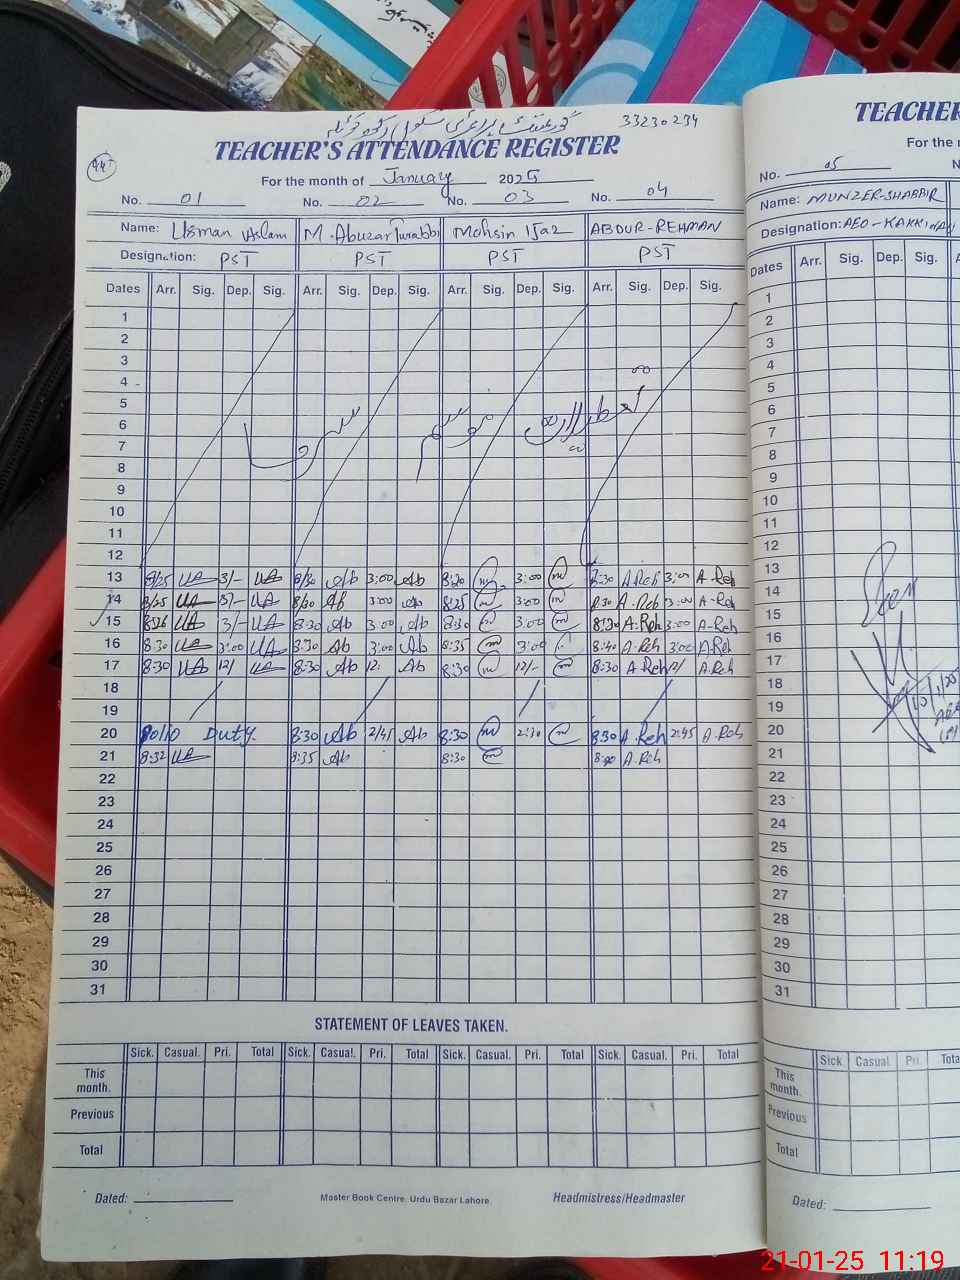 33230234
TEACHER'S ATTENDANCE REGISTER
For the month of January 2025
No. 01 No. 02 No. 03 No. 04
Name: Usman Aslam M. Abuzar Turabbi Mohsin Ijaz ABDUR-REHMAN
Designation: PST PST PST PST
Dates Arr. Sig. Dep. Sig. Arr. Sig. Dep. Sig. Arr. Sig. Dep. Sig. Arr. Sig. Dep. Sig.
1
2
3
4
5
6
7
8
9
10
11
12
موسم سرما تعطیلات
13 8/25 UA 3/- UA 8/30 Ab 3:00 Ab 8:30 3:00 8:30 A.Reh 3:00 A.Reh
14 8/25 UA 3/- UA 8/30 Ab 3:00 Ab 8:25 3:00 8:30 A.Reh 3:00 A-Reh
15 8:26 UA 3/- UA 8:30 Ab 3:00 Ab 8:30 3:00 8:30 A.Reh 3:00 A-Reh
16 8:30 UA 3:00 UA 8:30 Ab 3:00 Ab 8:35 3:00 8:40 A.Reh 3:00 A.Reh
17 8:30 UA 12/ UA 8:30 Ab 12: Ab 8:30 12/- 8:30 A.Reh 12/ A.Reh
18
19
20 Polio Duty. 8:30 Ab 2/45 Ab 8:30 2:30 8:30 A.Reh 2:45 A.Reh
21 8:32 UA 8:35 Ab 8:30 A.Reh
22
23
24
25
26
27
28
29
30
31
STATEMENT OF LEAVES TAKEN.
Sick. Casual. Pri. Total Sick. Casual. Pri. Total Sick. Casual. Pri. Total Sick. Casual. Pri. Total
This month.
Previous
Total
Dated: Master Book Centre. Urdu Bazar Lahore. Headmistress/Headmaster
TEACHER
For the m
No. 05 N
Name: MUNZER-SHABBIR
Designation: AEO-KAKKI
Dates Arr. Sig. Dep. Sig.
1
2
3
4
5
6
7
8
9
10
11
12
13
14
15
16
17
18
19
20
21
22
23
24
25
26
27
28
29
30
31
Sick Casual Pri. Tota
This month.
Previous
Total
Dated:
21-01-25 11:19